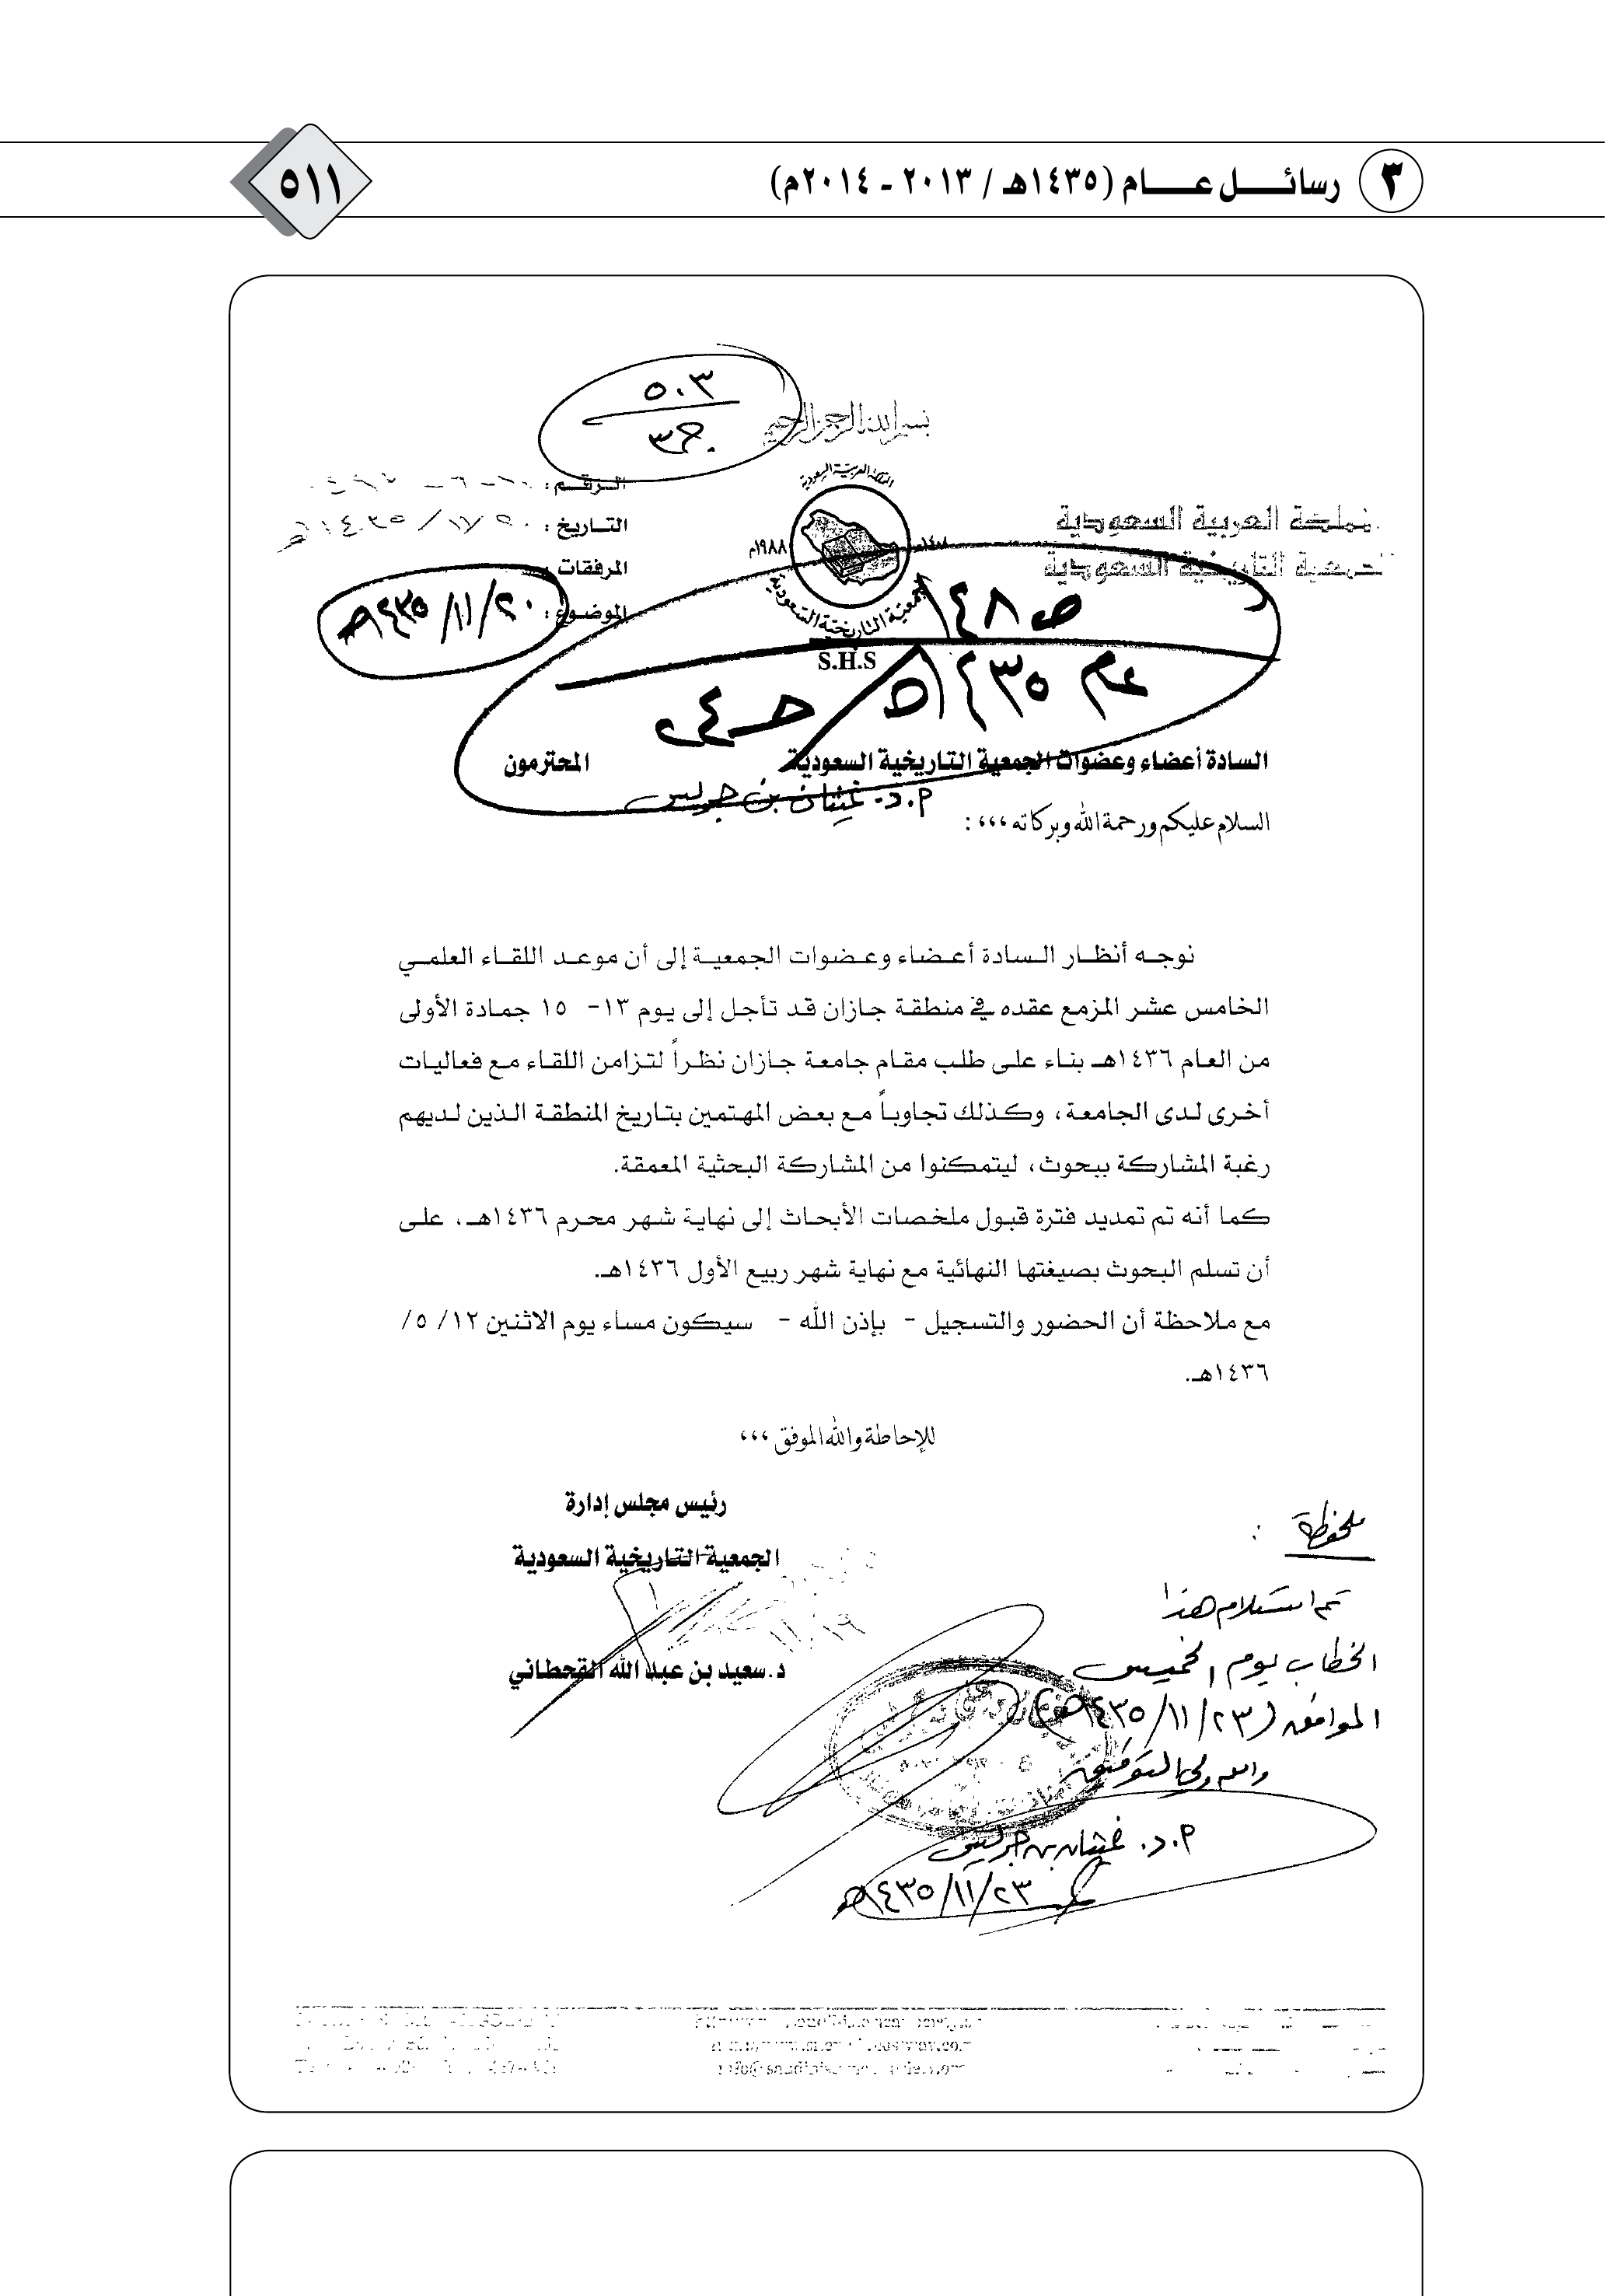 ٣ رسائل عام (١٤٣٥هـ / ٢٠١٣ - ٢٠١٤م)
٥١١
٥٠٣
ج٣
بسم الله الرحمن الرحيم
المملكة العربية السعودية
الجمعية التاريخية السعودية
المملكة العربية السعودية
١٤٠٨هـ
١٩٨٨م
الجمعية التاريخية السعودية
S.H.S
الرقم :
التاريخ : ٢٠/١١/١٤٣٥هـ
المرفقات :
الموضوع :
٢٠/١١/١٤٣٥هـ
ص ١٤٨
عام ١٤٣٥هـ /
السادة أعضاء وعضوات الجمعية التاريخية السعودية المحترمون
م.د. غيثان بن جريس
السلام عليكم ورحمة الله وبركاته ،،، :
نوجه أنظار السادة أعضاء وعضوات الجمعية إلى أن موعد اللقاء العلمي
الخامس عشر المزمع عقده في منطقة جازان قد تأجل إلى يوم ١٣- ١٥ جمادة الأولى
من العام ١٤٣٦هـ بناء على طلب مقام جامعة جازان نظراً لتزامن اللقاء مع فعاليات
أخرى لدى الجامعة، وكذلك تجاوباً مع بعض المهتمين بتاريخ المنطقة الذين لديهم
رغبة المشاركة ببحوث، ليتمكنوا من المشاركة البحثية المعمقة.
كما أنه تم تمديد فترة قبول ملخصات الأبحاث إلى نهاية شهر محرم ١٤٣٦هـ، على
أن تسلم البحوث بصيغتها النهائية مع نهاية شهر ربيع الأول ١٤٣٦هـ.
مع ملاحظة أن الحضور والتسجيل - بإذن الله - سيكون مساء يوم الاثنين ١٢/ ٥/
١٤٣٦هـ.
للإحاطة والله الموفق ،،،
رئيس مجلس إدارة
الجمعية التاريخية السعودية
١٩/١١
د. سعيد بن عبد الله القحطاني
ملحوظة :
تم استلام هذا
الخطاب يوم الخميس
الموافق (٢٣/١١/١٤٣٥هـ)
والله ولي التوفيق
م.د. غيثان بن جريس
٢٣/١١/١٤٣٥هـ